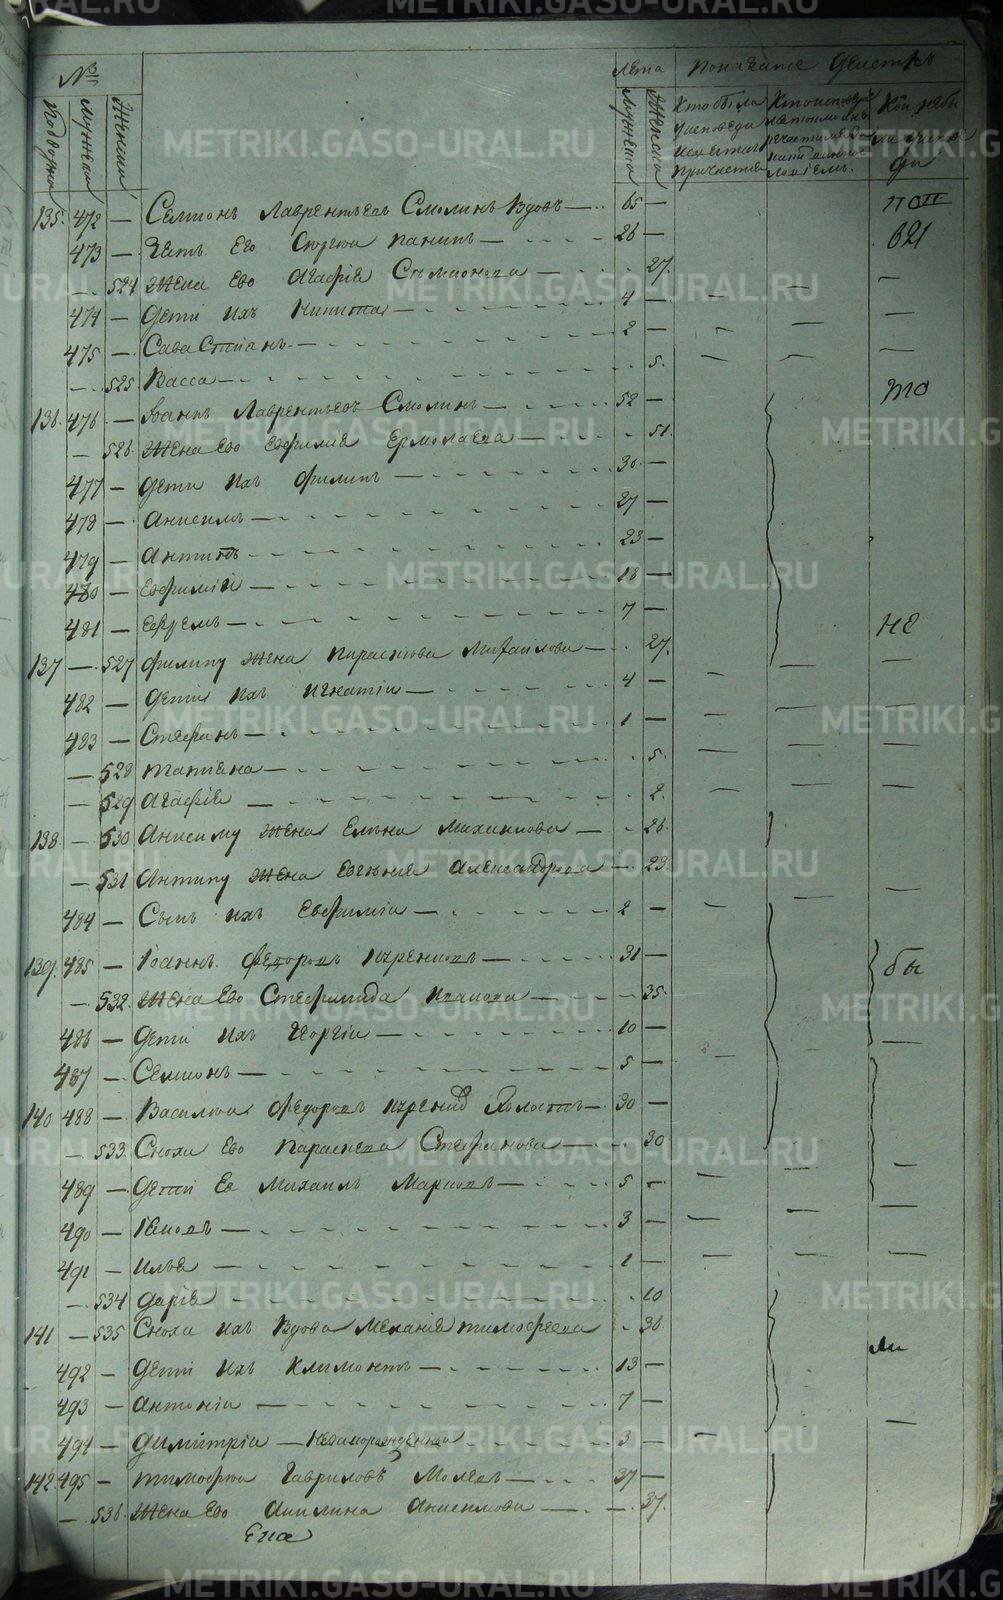 №
Лета
Показание
Подворно
Мужска
Женски
Мужска
Женска
Кто были
у исповеди
причастия
135. 472 — Семионъ Лаврентьевъ Смолинъ Вдовъ — 65 —
поп
473 — Его 26 —
621
— 524 Жена Ево Агафiя Семионова — 27.
474 — Дети ихъ Никита — 4 —
475 — Савастианъ — 2 —
— 525 Васса — 5.
136. 476 — Iоаннъ Лаврентьевъ Смолинъ — 52 —
то
— 526. Жена Ево Евфимiя Ермолаева — 51.
477 — Дети ихъ Филипъ — 30 —
478 — Анисимъ — 27 —
479 — Антипъ — 23 —
480 — Евфимiй — 18 —
481 — Ефремъ — 7 —
не
137 — 527 Филипу Жена Параскова Михаилова — 27.
482 — Дети ихъ Игнатiи — 4 —
483 — Стефанъ — 1 —
— 528 Татiяна — 5.
— 529 Агафiя — 2.
138 — 530 Анисиму Жена Елена Михаилова — 26.
— 531 Антипу Жена Евгения Александрова — 29.
484 — Сынъ ихъ Евфимiи — 2 —
139. 485 — Iоаннъ Федоровъ — 31 —
бы
— 532. Жена Ево Стефанида Иванова — 35.
486 — Дети ихъ Георгiи — 10 —
487 — Семионъ — 5 —
140 488 — Василеи Федоровъ Холостъ — 30 —
— 533 Сноха Ево Параскева Стефанова — 30
489 — Дети Ея Михаилъ Марковъ — 5 —
490 — Iаковъ — 3 —
491 — Илья — 1 —
— 534 Дарiя — 10
141 — 535 Сноха ихъ Вдова Меланiя Тимофеева 36.
ли
492 — Дети ихъ Климонтъ — 13 —
493 — Антонiи — 7 —
494 — Димитрiи — Незаконорожденнои 3 —
142. 495 — Тимофеи Гавриловъ — 37 —
— 536. Жена Ево Акилина Анисимова — 37.
METRIKI.GASO-URAL.RU